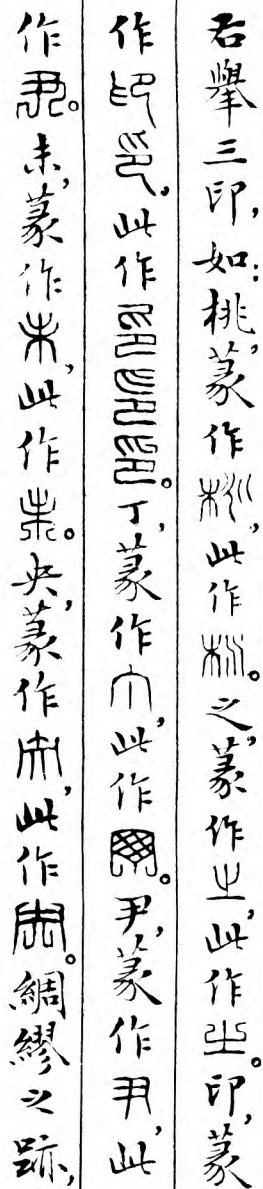 右舉三印，如：桃，篆作，此作。之，篆作，此作。印，篆
作，此作。丁，篆作，此作。尹，篆作，此
作。未，篆作，此作。央，篆作，此作。綢繆之跡，